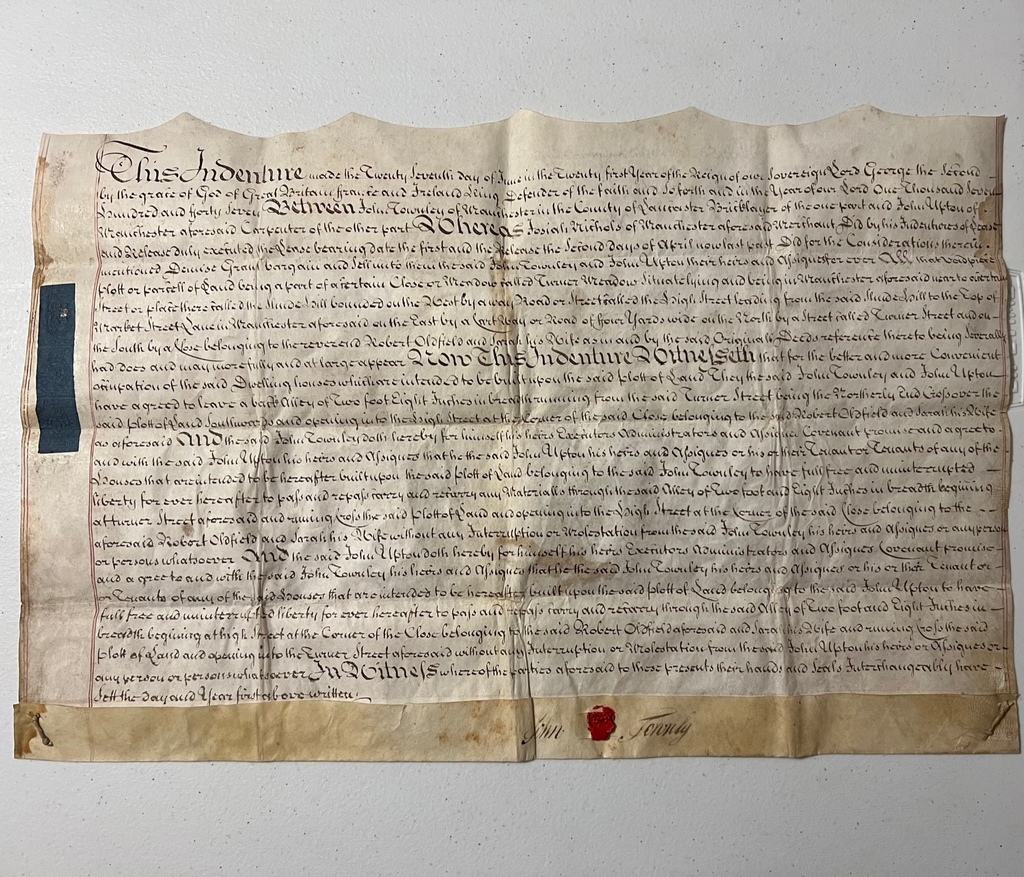 This Indenture made the Twenty Seventh day of June in the Twenty first Year of the Reign of our Sovereign Lord George the Second
by the grace of God of Great Britain france and Ireland King Defender of the faith and so forth and in the Year of our Lord One Thousand Seven
Hundred and forty Seven Between John Townley of Manchester in the County of Lancaster Bricklayer of the one part and John Upton of
Manchester aforesaid Carpenter of the other part Whereas Josiah Nichols of Manchester aforesaid Merchant Did by his Indentures of Lease
and Release duly executed the Lease bearing date the first and the Release the Second days of April now last past Did for the Considerations therein
mentioned Demise Grant bargain and Sell unto them the said John Townley and John Upton their heirs and Assignes for ever All that
plott or parcell of Land being a part of a Certain Close or Meadow Called Turner Meadow Situate lying and being in Manchester aforesaid near a Certain
Street or place there called the Shude Hill bounded on the West by a way Road or Street called the High Street leading from the said Shude Hill to the Top of
Market Street Lane in Manchester aforesaid on the East by a Cart Way or Road of four Yards wide on the North by a Street called Turner Street and on
the South by a Close belonging to the reverend Robert Oldfield and Sarah his Wife as in and by the said Originall Deeds reference thereto being Severally
had does and may more fully and at large appear Now This Indenture Witnesseth that for the better and more Convenient
occupation of the said Dwelling houses which are intended to be built upon the said plott of Land They the said John Townley and John Upton
have agreed to leave a back Alley of Two foot Eight Inches in breadth running from the said Turner Street being the Northerly End Cross over the
said plott of Land Southwards and opening into the High Street at the Corner of the said Close belonging to the said Robert Oldfield and Sarah his Wife
as aforesaid And the said John Townley doth hereby for himself his heirs Executors Administrators and Assignes Covenant promise and agree to
and with the said John Upton his heirs and Assignes that he the said John Upton his heirs and Assignes or his or their Tenant or Tenants of any of the
Houses that are intended to be hereafter built upon the said plott of Land belonging to the said John Townley to have full free and uninterrupted
liberty for ever hereafter to pass and repass carry and recarry any Materialls through the said Alley of Two foot and Eight Inches in breadth begining
at turner Street aforesaid and runing Cross the said Plott of Land and opening into the High Street at the Corner of the said Close belonging to the
aforesaid Robert Oldfield and Sarah his Wife without any Interruption or Molestation from the said John Townley his heirs and Assignes or any person
or persons whatsoever And the said John Upton doth hereby for himself his heirs Executors Administrators and Assignes Covenant promise
and agree to and with the said John Townley his heirs and Assignes that he the said John Townley his heirs and Assignes or his or their Tenant or
Tenants of any of the said Houses that are intended to be hereafter built upon the said plott of Land belonging to the said John Upton to have
full free and uninterrupted liberty for ever hereafter to pass and repass carry and recarry through the said Alley of Two foot and Eight Inches in
breadth begining at high Street at the Corner of the Close belonging to the said Robert Oldfield aforesaid and Sarah his Wife and runing Cross the said
plott of Land and opening into the Turner Street aforesaid without any Interruption or Molestation from the said John Upton his heirs or Assignes or
any person or persons whatsoever In Witness whereof the parties aforesaid to these presents their hands and Seals Interchangeably have
Sett the day and Year first above written
John Townly